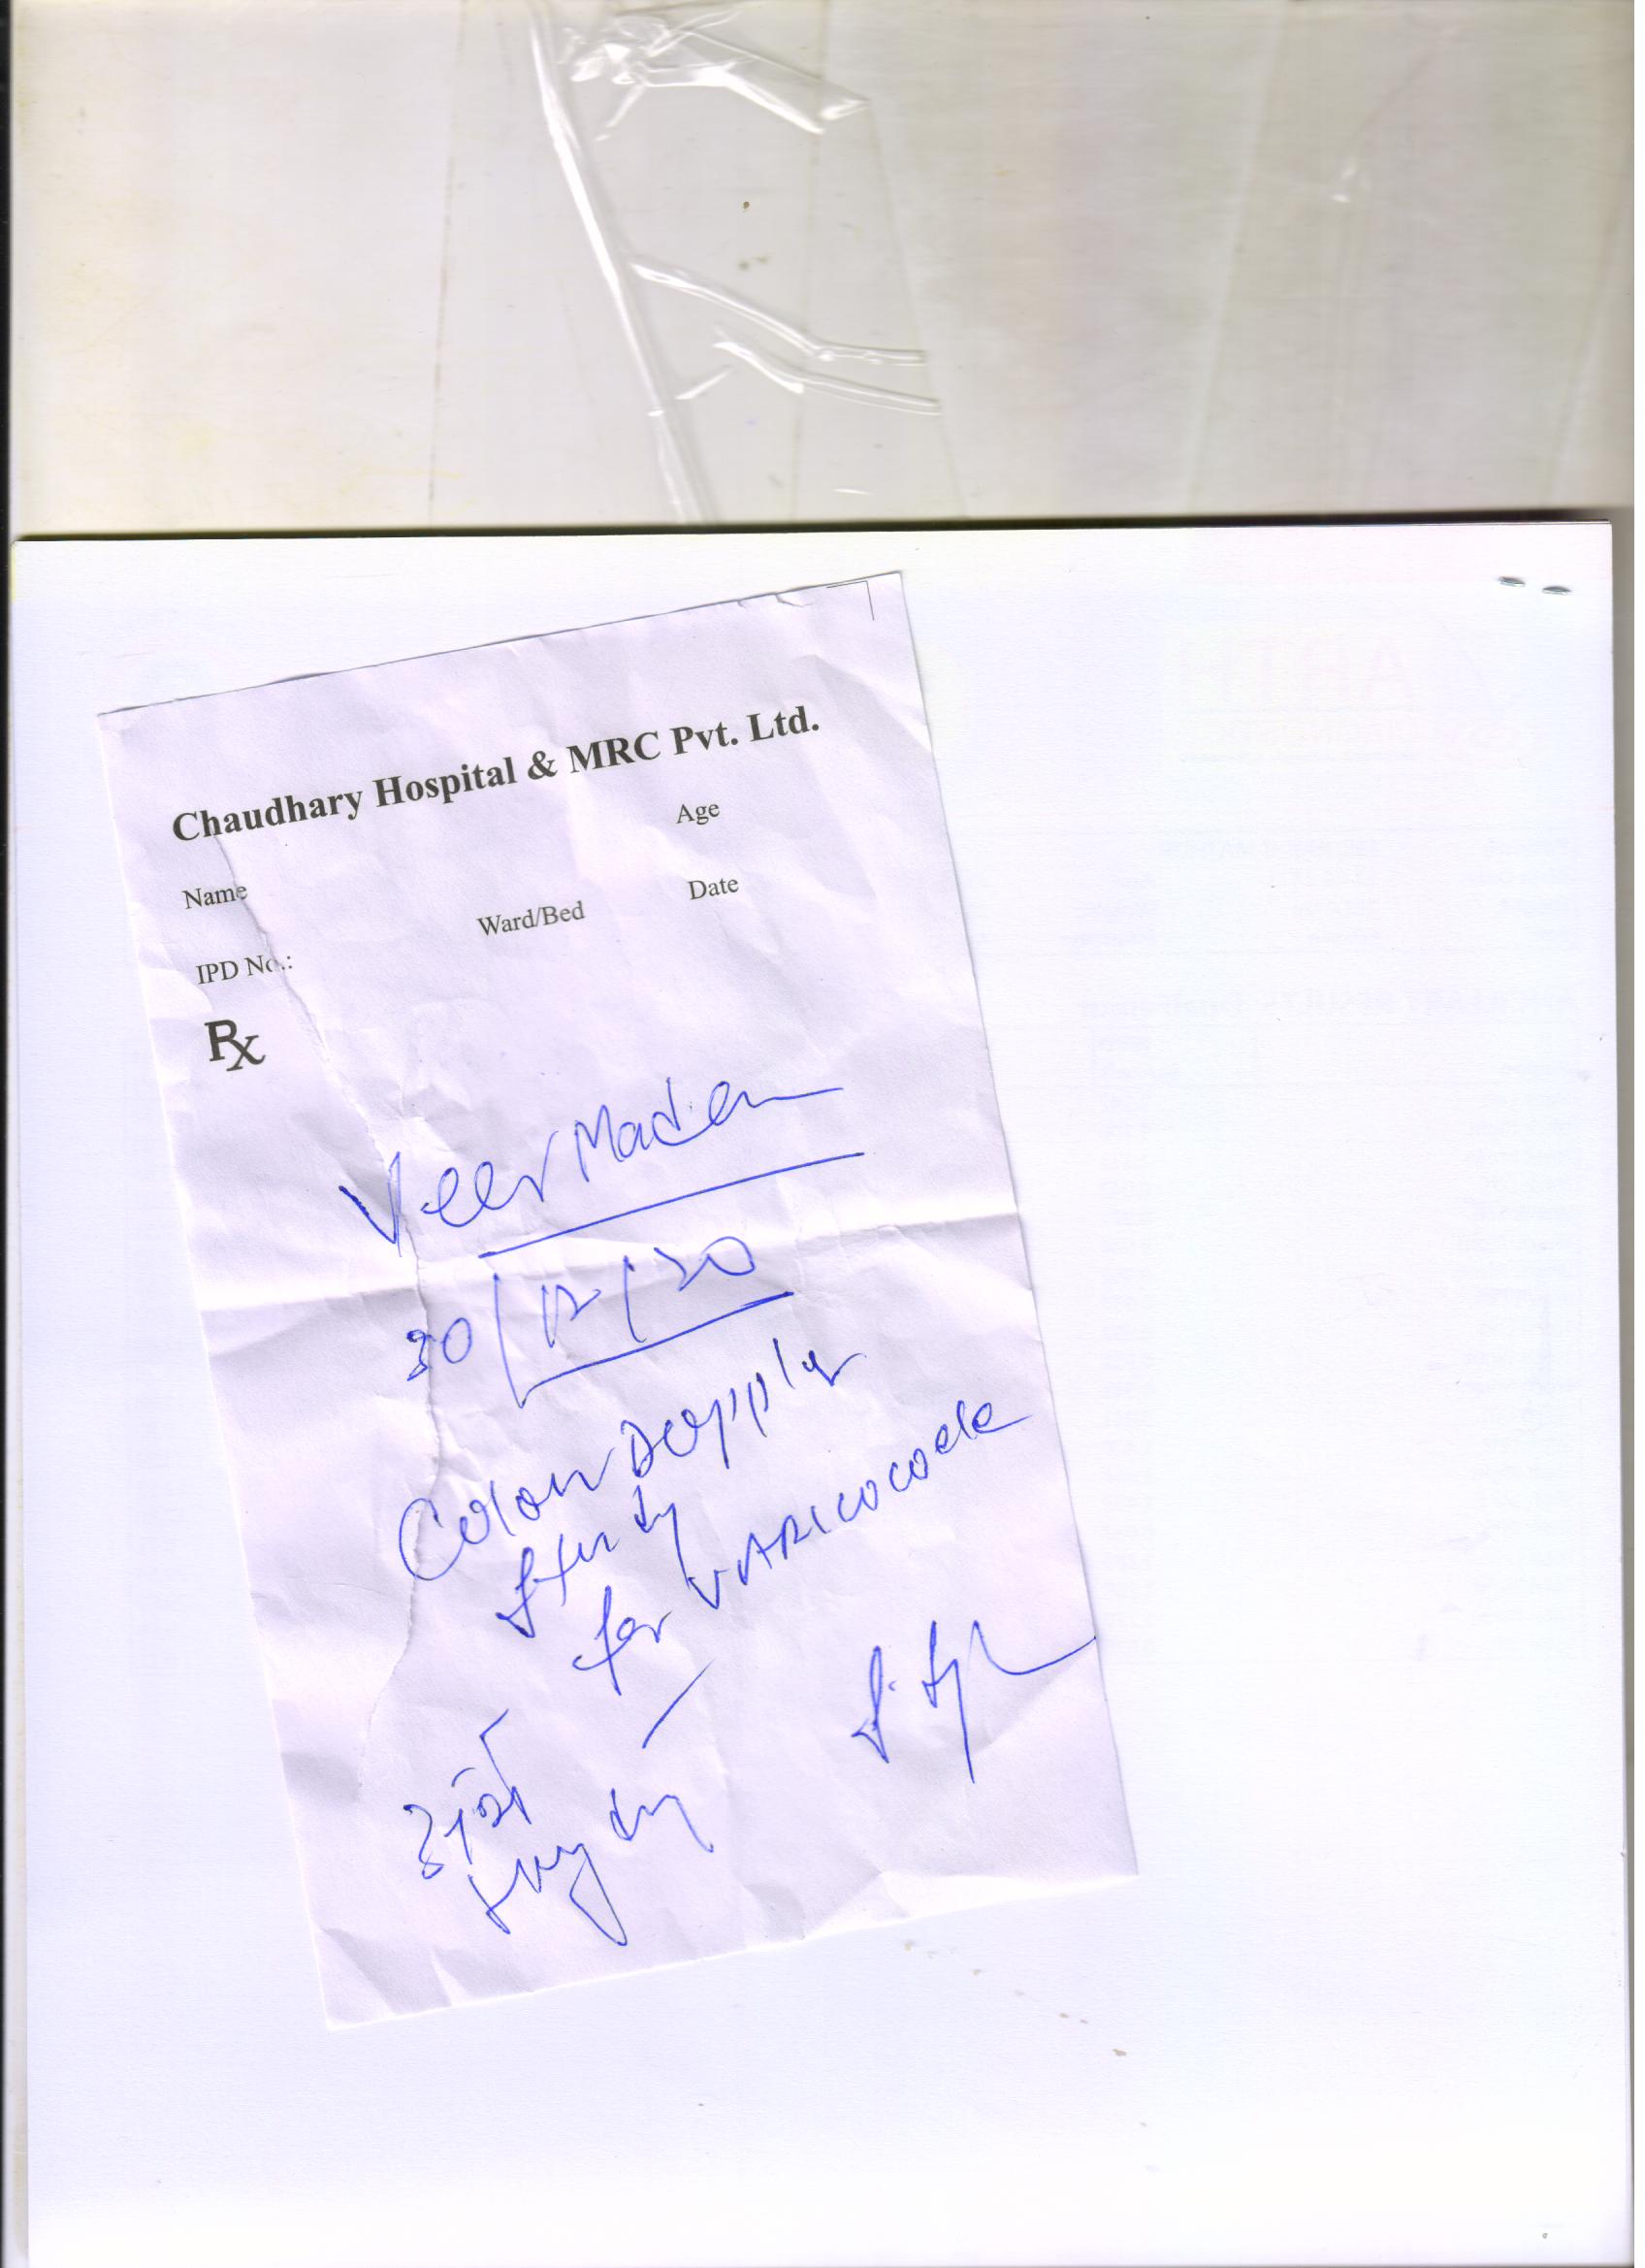 Chaudhary Hospital & MRC Pvt. Ltd.
Name Age
IPD No.: Ward/Bed Date
Rx
Veer Madan
30/12/20
Colour Doppler
study
for VARICOCOELE